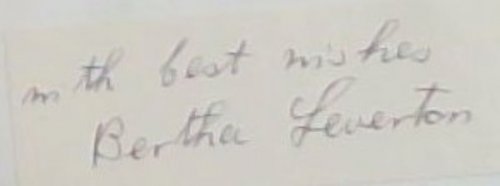 with best wishes
Bertha Leverton